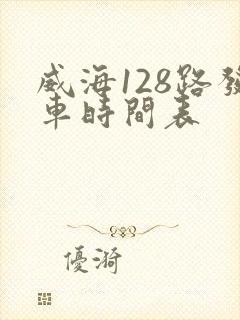 威海128路發
車時間表
優漪